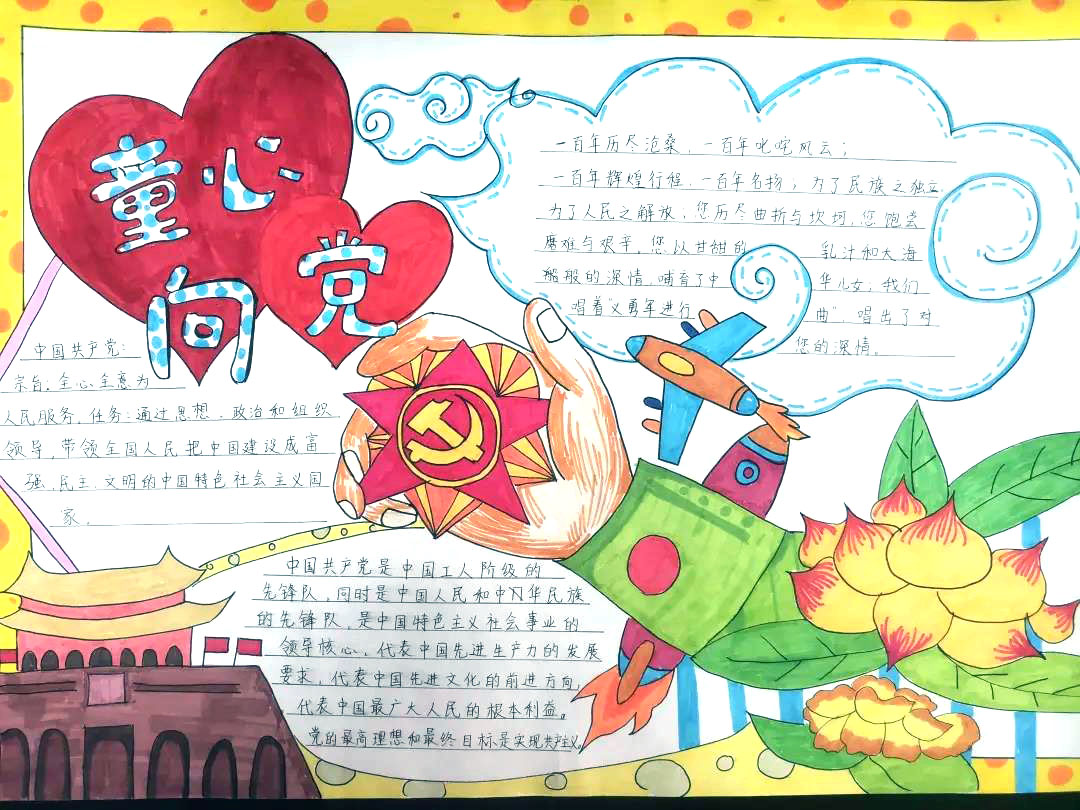 童心
向党
一百年历尽沧桑，一百年叱咤风云；
一百年辉煌行程，一百年名扬；为了民族之独立
为了人民之解放；您历尽曲折与坎坷，您饱尝
磨难与艰辛，您以甘甜的乳汁和大海
般般的深情，哺育了中华儿女；我们
唱着“义勇军进行曲”，唱出了对
您的深情。
中国共产党：
宗旨：全心全意为
人民服务。任务：通过思想、政治和组织
领导，带领全国人民把中国建设成富
强、民主、文明的中国特色社会主义国
家。
中国共产党是中国工人阶级的
先锋队，同时是中国人民和中华民族
的先锋队，是中国特色主义社会事业的
领导核心，代表中国先进生产力的发展
要求，代表中国先进文化的前进方向，
代表中国最广大人民的根本利益。
党的最高理想和最终目标是实现共产主义。